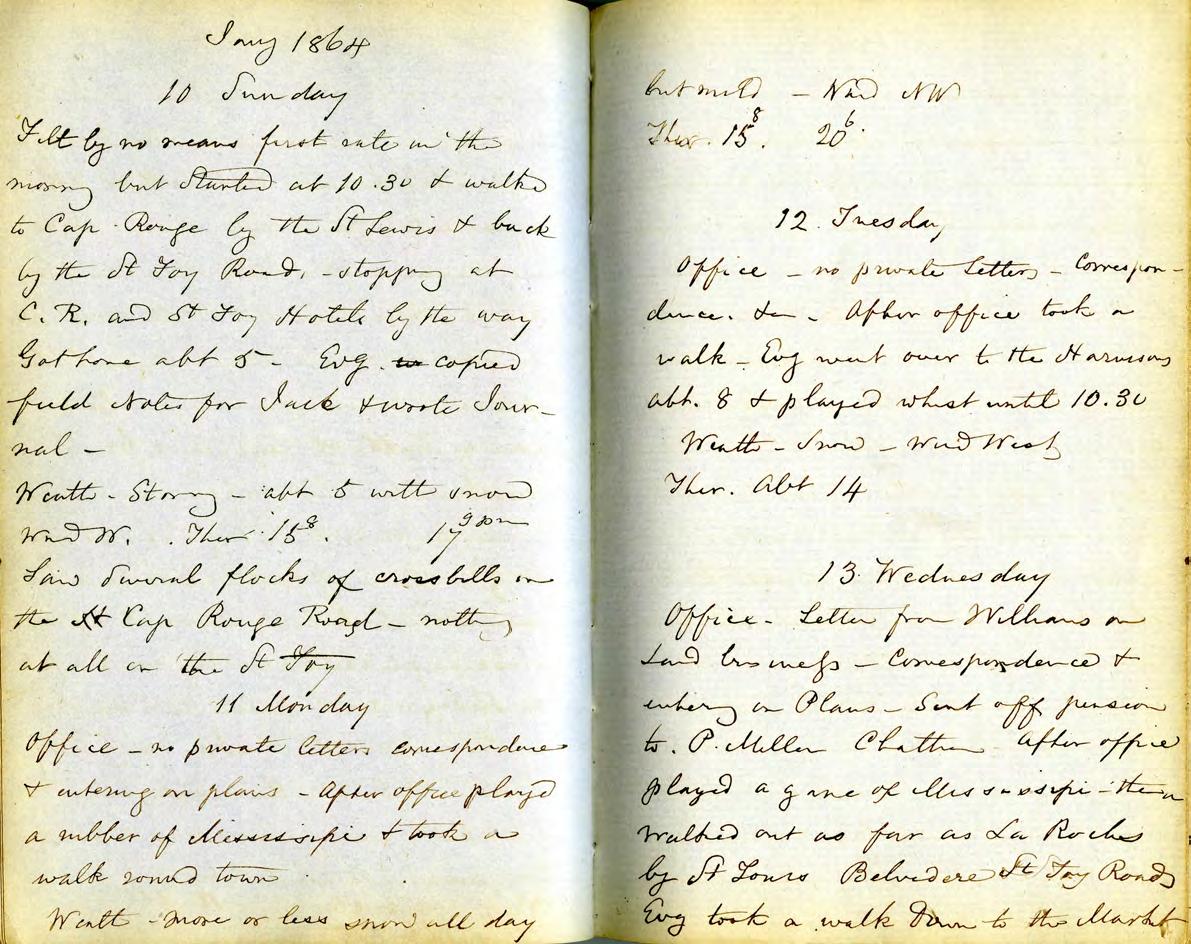 Jany 1864
10 Sunday
Felt by no means first rate in the
morng but Started at 10.30 & walked
to Cap Rouge by the St Lewis & back
by the St Foy Road, - stopping at
C. R. and St Foy Hotels by the way
Got home abt 5 - Evg. copied
field Notes for Jack & wrote Jour-
nal -
Weath - Stormy - abt 5 with snow
Wind W. Ther. 15 8. 17 9 pm
Saw Several flocks of crossbills on
the St Cap Rouge Road - nothing
at all on the St Foy
11 Monday
Office - no private letters correspondence
& entering on plans - After office played
a rubber of Mississipi & took a
walk round town
Weath - more or less snow all day
but mild - Wind NW
Ther. 15 8. 20 6.
12. Tuesday
Office - no private Letters - Correspon-
dence. &c - After office took a
walk - Evg went over to the Harvisons
abt. 8 & played whist until 10.30
Weath - Snow - Wind West
Ther. Abt 14
13. Wednesday
Office - Letter from Williams on
Land business - Correspondence &
entering on Plans - Sent off pension
to. P. Miller Chatham - After office
played a game of Mississipi - then
walked out as far as La Roches
by St Louis Belvedere St Foy Roads
Evg took a walk Down to the Market